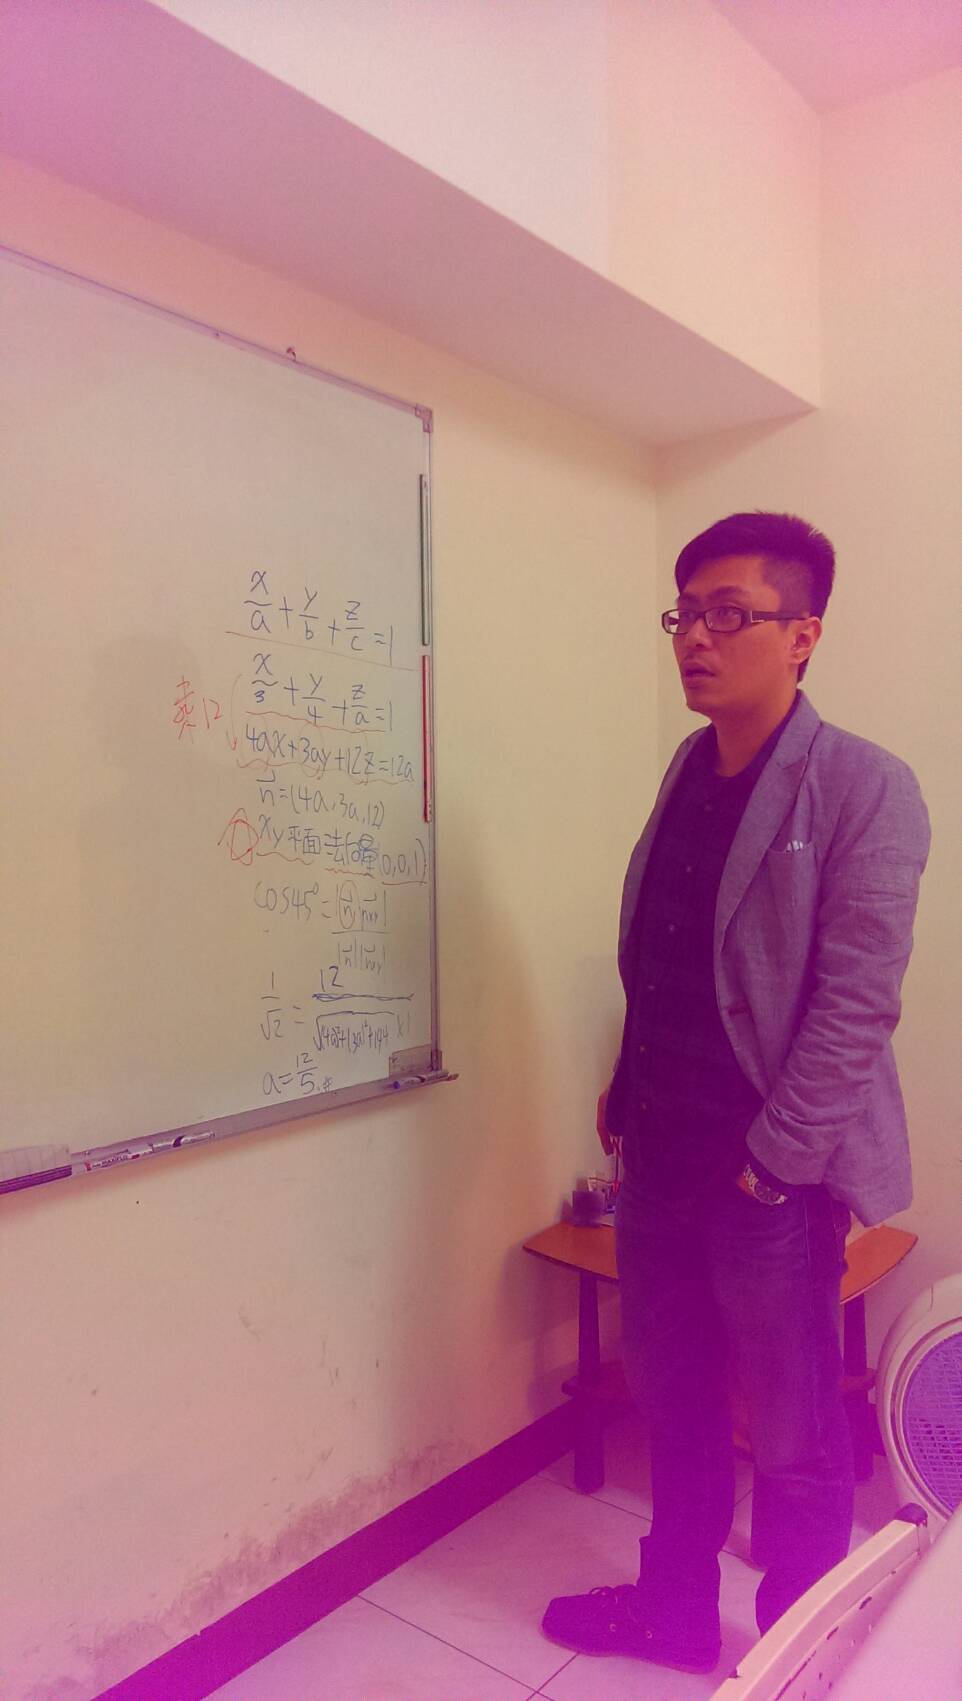 x/a + y/b + z/c = 1
x/3 + y/4 + z/a = 1
乘12
4ax+3ay+12z=12a
n⃗=(4a,3a,12)
xy平面法向量(0,0,1)
cos45°=|n⃗·n⃗xy|/|n⃗||n⃗xy|
1/√2 = 12/√((4a)²+(3a)²+144) ×1
a=12/5.#